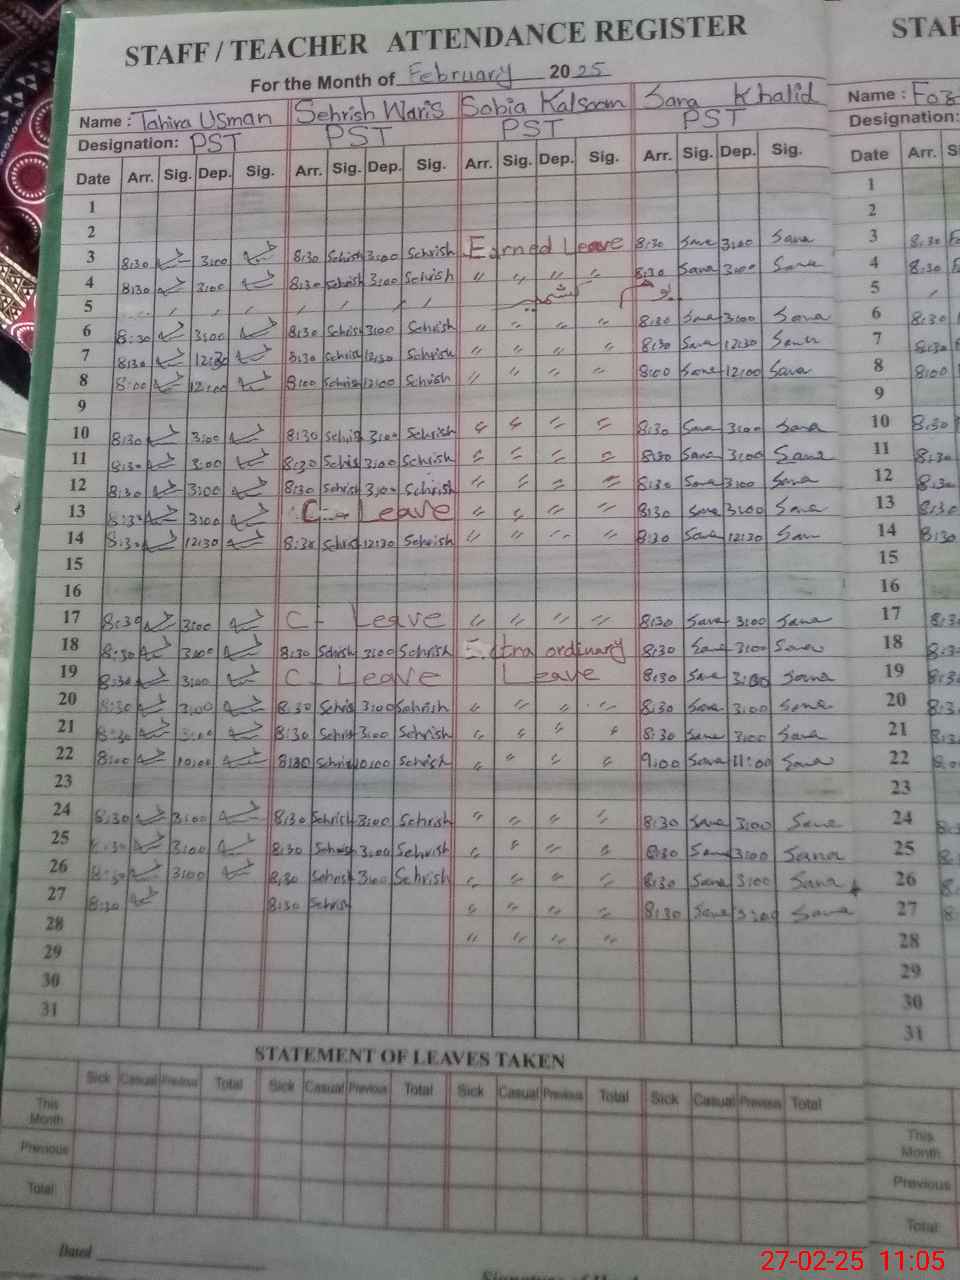 STAFF / TEACHER ATTENDANCE REGISTER STAF
For the Month of February 2025
Name : Tahira Usman Sehrish Waris Sobia Kalsoom Sara Khalid Name : Foz
Designation: PST PST PST PST Designation:
Date Arr. Sig. Dep. Sig. Arr. Sig. Dep. Sig. Arr. Sig. Dep. Sig. Arr. Sig. Dep. Sig. Date Arr. S
1 1
2 2
3 8:30 3:00 8:30 Sehrish 3:00 Sehrish Earned Leave 8:30 Sara 3:00 Sara 3 8:30
4 8:30 3:00 8:30 Sehrish 3:00 Sehrish " " " " 8:30 Sara 3:00 Sara 4 8:30
5 یوم کشمیر 5
6 8:30 3:00 8:30 Sehrish 3:00 Sehrish " " " " 8:30 Sara 3:00 Sara 6 8:30
7 8:30 12:30 8:30 Sehrish 12:30 Sehrish " " " " 8:30 Sara 12:30 Sara 7 8:30
8 8:00 12:00 8:00 Sehrish 12:00 Sehrish " " " " 8:00 Sara 12:00 Sara 8 8:00
9 9
10 8:30 3:00 8:30 Sehrish 3:00 Sehrish " " " " 8:30 Sara 3:00 Sara 10 8:30
11 8:30 3:00 8:30 Sehrish 3:00 Sehrish " " " " 8:30 Sara 3:00 Sara 11 8:30
12 8:30 3:00 8:30 Sehrish 3:00 Sehrish " " " " 8:30 Sara 3:00 Sara 12 8:30
13 8:30 3:00 C- Leave " " " " 8:30 Sara 3:00 Sara 13 8:30
14 8:30 12:30 8:30 Sehrish 12:30 Sehrish " " " " 8:30 Sara 12:30 Sara 14 8:30
15 15
16 16
17 8:30 3:00 C- Leave " " " " 8:30 Sara 3:00 Sara 17 8:30
18 8:30 3:00 8:30 Sehrish 3:00 Sehrish Extra ordinary 8:30 Sara 3:00 Sara 18 8:3
19 8:30 3:00 C- Leave Leave 8:30 Sara 3:00 Sara 19 8:3
20 8:30 3:00 8:30 Sehrish 3:00 Sehrish " " " " 8:30 Sara 3:00 Sara 20 8:3
21 8:30 3:00 8:30 Sehrish 3:00 Sehrish " " " " 8:30 Sara 3:00 Sara 21 8:3
22 8:00 10:00 8:00 Sehrish 10:00 Sehrish " " " " 9:00 Sara 11:00 Sara 22
23 23
24 8:30 3:00 8:30 Sehrish 3:00 Sehrish " " " " 8:30 Sara 3:00 Sara 24
25 8:30 3:00 8:30 Sehrish 3:00 Sehrish " " " " 8:30 Sara 3:00 Sara 25
26 8:30 3:00 8:30 Sehrish 3:00 Sehrish " " " " 8:30 Sara 3:00 Sara 26
27 8:30 8:30 Sehrish " " " " 8:30 Sara 3:00 Sara 27
28 " " " " 28
29 29
30 30
31 31
STATEMENT OF LEAVES TAKEN
Sick Casual Previous Total Sick Casual Previous Total Sick Casual Previous Total Sick Casual Previous Total
This Month This Month
Previous Previous
Total Total:
Dated
27-02-25 11:05